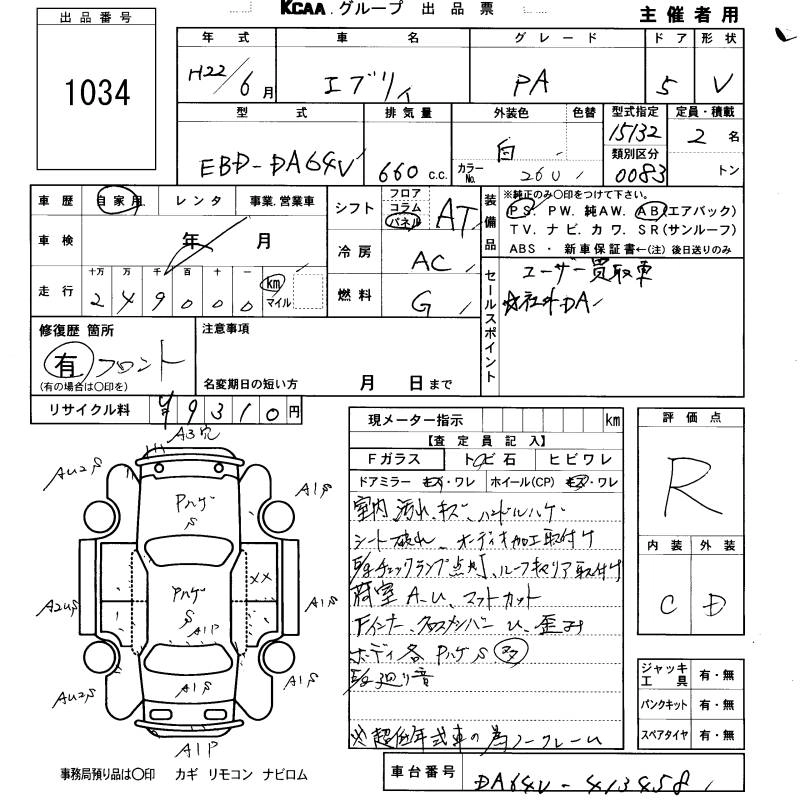 KCAA.グループ 出品票
主催者用
出品番号
1034
年式 車名 グレード ドア 形状
H22/6月 エブリィ PA 5 V
型式 排気量 外装色 色替 型式指定 定員・積載
15132 2名
EBD-DA64V 660 c.c. 白 カラーNo. 26U 類別区分 0083 トン
車歴 自家用 レンタ 事業.営業車
シフト フロア コラム パネル AT
装備品
※純正のみ〇印をつけて下さい。
PS. PW. 純AW. AB(エアバック)
TV. ナビ. カワ. SR(サンルーフ)
ABS ・ 新車保証書←(注)後日送りのみ
車検 年 月
冷房 AC
走行 十万 万 千 百 十 一
249000 km マイル
燃料 G
セールスポイント
ユーザー買取車
社外DA
修復歴 箇所
有 フロント
(有の場合は〇印を)
注意事項
名変期日の短い方 月 日まで
リサイクル料 9310円
現メーター指示 km
【査定員記入】
Fガラス トビ石 ヒビワレ
ドアミラー キズ・ワレ ホイール(CP) キズ・ワレ
室内汚れ、キズ、ハンドルハゲ
シート破れ、オーディオ加工取付け
チェックランプ点灯、ルーフキャリア取付け
荷室A-U、マットカット
Fインナー、クロスメンバーU、歪み
ボディ各PハゲS 多
廻り音
※超低年式車の為ノークレーム
評価点
R
内装 外装
C D
ジャッキ工具 有・無
パンクキット 有・無
スペアタイヤ 有・無
A3穴
AU2S
A1S
Pハゲ
S
XX
A2US
Pハゲ
S
A1P
A1S
AU2S
A1S
A1S
A1P
事務局預り品は〇印 カギ リモコン ナビロム
車台番号 DA64V-413458